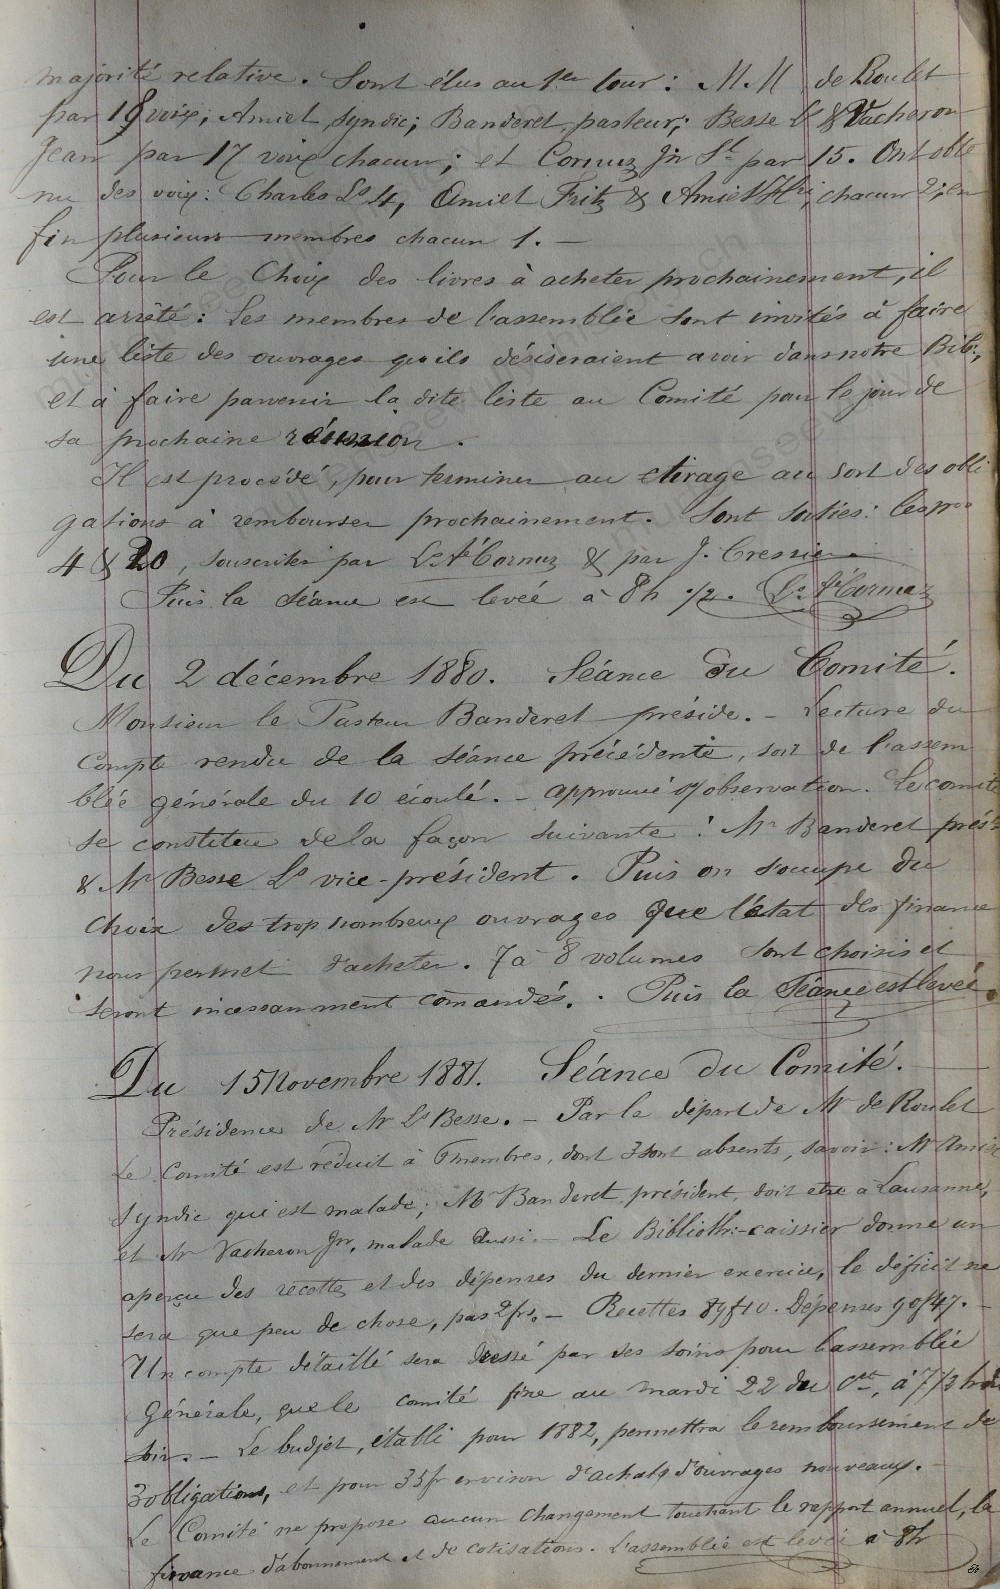 majorité relative. Sont élus au 1er tour : M.M. de Roulet
par 18 voix; Amiet, syndic; Banderet, pasteur; Besse Ls & Vacheron
Jean par 17 voix chacun; et Cornuz Jn St par 15. Ont obte
nu des voix : Charles Ls 4, Amiet Fritz & Amiet Hri, chacun 2; en
fin plusieurs membres chacun 1. —
Pour le Choix des livres à acheter prochainement, il
est arrêté : Les membres de l'assemblée sont invités à faire
une liste des ouvrages qu'ils désireraient avoir dans notre Bib:,
et à faire parvenir la dite liste au Comité pour le jour de
sa prochaine réunion.
Il est procédé, pour terminer au tirage au sort des obli
gations à rembourser prochainement. Sont sorties : les nos
4 & 20, souscrites par Ls Ate Cornuz & par J. Cressier.
Puis la séance est levée à 8h 1/2. Ls Ate Cornuz
Du 2 décembre 1880. Séance du Comité.
Monsieur le Pasteur Banderet préside. — Lecture du
compte rendu de la séance précédente, soit de l'assem
blée générale du 10 écoulé. — approuvé observation. Le comité
se constitue de la façon suivante : Mr Banderet prést
& Mr Besse Ls vice-président. Puis on s'occupe du
choix des trop nombreux ouvrages que l'état des finance
nous permet d'acheter. 7 à 8 volumes sont choisis et
seront incessamment comandés. Puis la séance est levée.
Du 15 Novembre 1881. Séance du Comité.
Présidence de Mr Ls Besse. — Par le départ de Mr de Roulet
Le Comité est réduit à 6 membres, dont 3 sont absents, savoir : Mr Amiet
Syndic qui est malade; Mr Banderet, président, doit etre à Lausanne,
et Mr Vacheron Jn, malade aussi. — Le Biblioth:-caissier donne un
aperçu des recettes et des dépenses du dernier exercice, le déficit ne
sera que peu de chose, pas 2 frs. — Recettes 89f10. Dépenses 90f47. —
Un compte détaillé sera dressé par ses soins pour l'assemblée
Générale, que le comité fixe au mardi 22 du ct, à 7 1/2 h du
soir. — Le budjet, établi pour 1882, permettra le remboursement de
3 obligations, et pour 35 fr environ d'achats d'ouvrages nouveaux. —
Le Comité ne propose aucun changement touchant le rapport annuel, la
finance d'abonnement et de cotisations. L'assemblée est levée à 8h